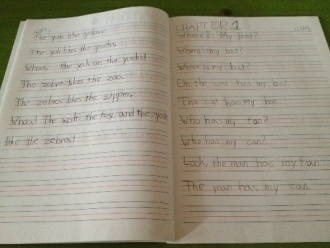 The yak the yellow.
The yak likes the yogurt.
Whoa! the yak on the yacht!
The zebra likes the zoo.
The zebra likes the zipper.
Whoa! The with the fox, and the yak
like the zebra!
CHAPTER 1
Where's My pear?
Where's my bat?
Where is my bat?
Oh, the cat has my bat.
The cat has my hat.
Who has my fan?
Who has my can?
Look, the man has my fan.
The man has my can.